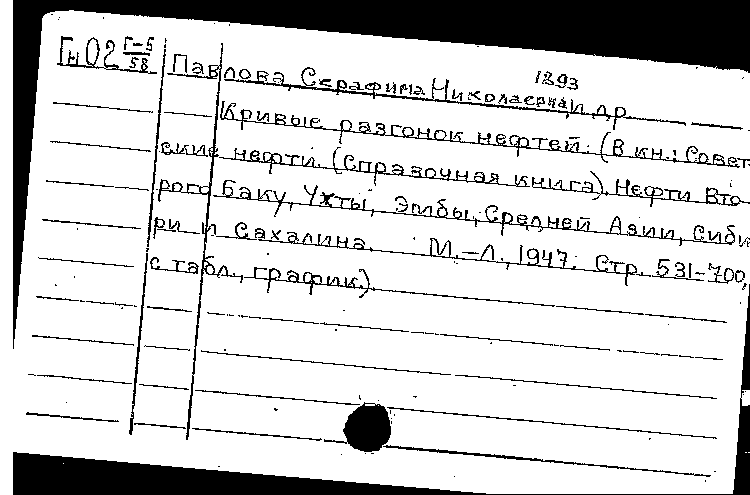 Гн02 Г-5/58
1893
Павлова, Серафима Николаевна, и др.
Кривые разгонок нефтей. (В кн.: Совет-
ские нефти. (Справочная книга). Нефти Вто-
рого Баку, Ухты, Эмбы, Средней Азии, Сиби
ри и Сахалина. М.-Л., 1947. Стр. 531-700,
с табл., график.).